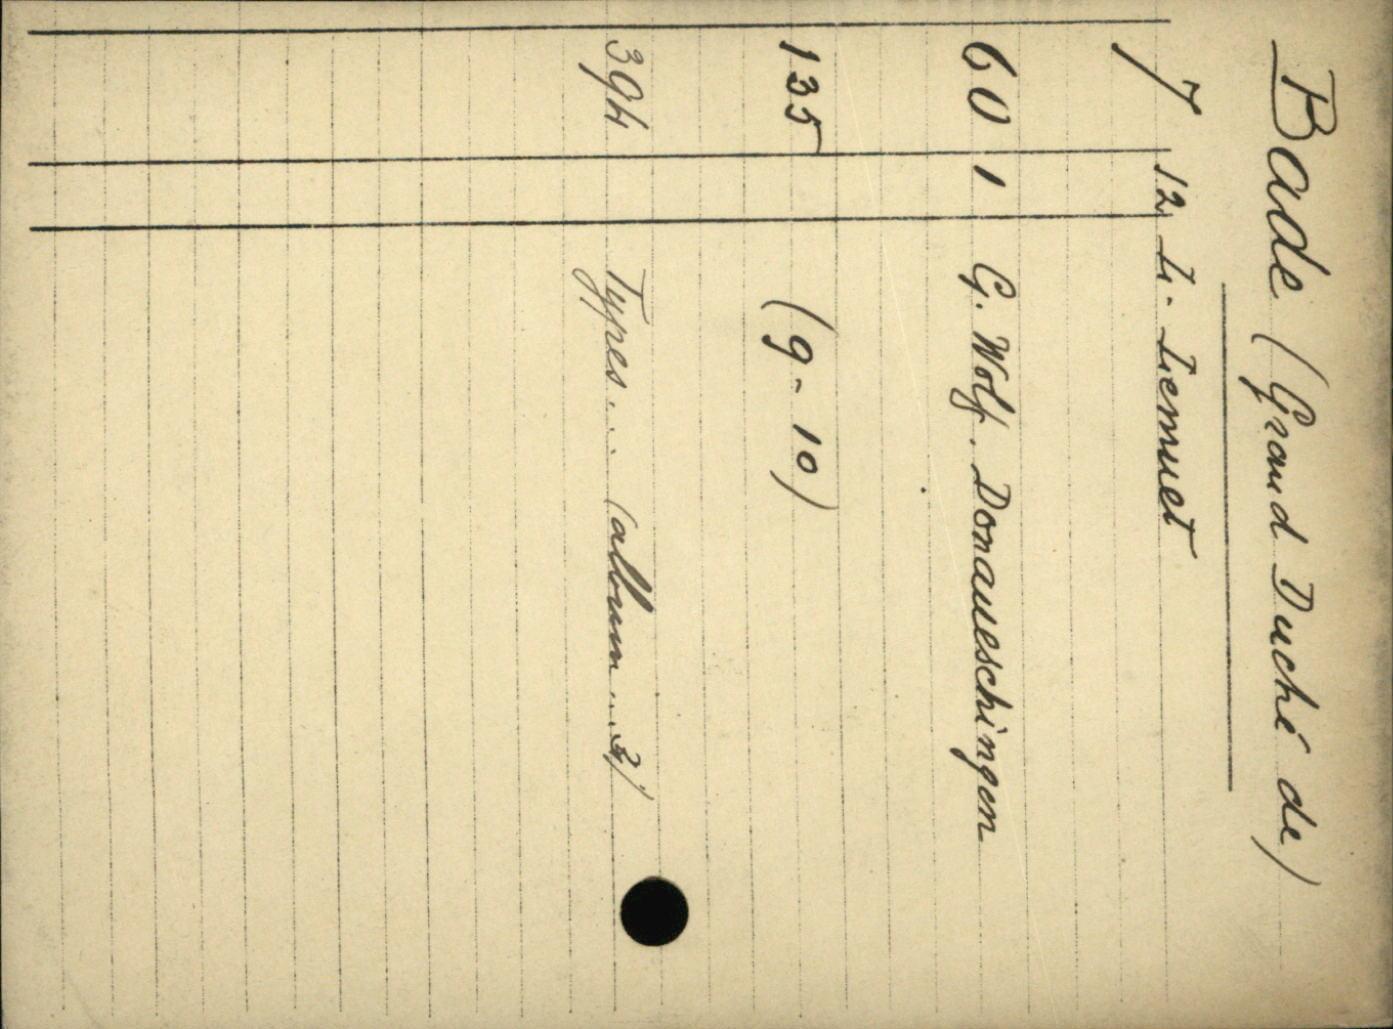 Bade (Grand Duché de)
7 12 L. Lemuet
60 1 G. Wolf. Donaueschingen
135 (9-10)
394 Types... (album...